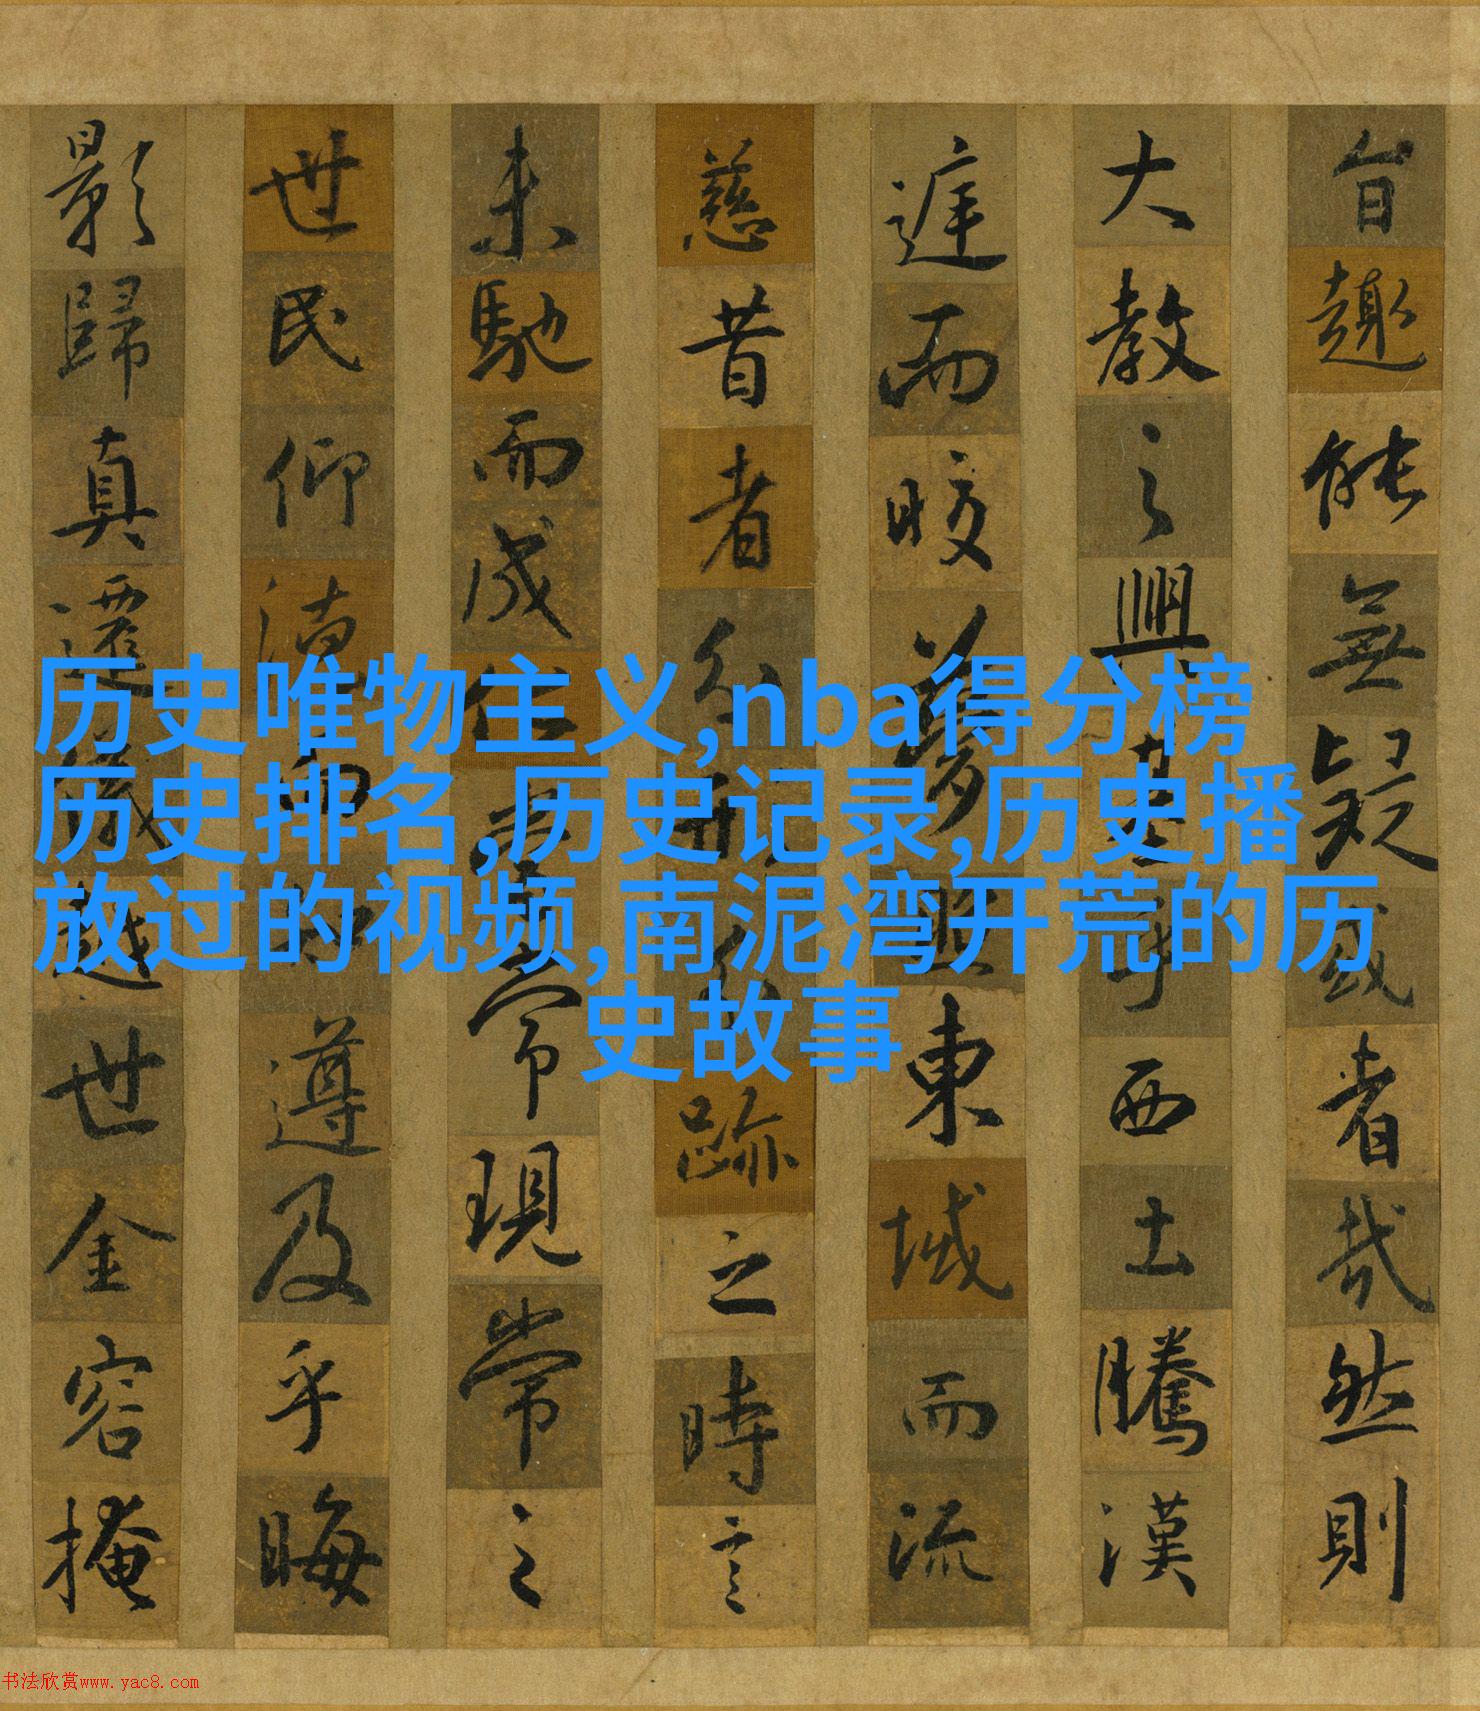 旨趣能無疑惑者哉然則
大教之興基乎西土騰漢
庭而皎夢照東域而流
慈昔者分形分跡之時言
未馳而成化當常現常之
世民仰德而知遵及乎晦
影歸真遷儀越世金容掩
历史唯物主义,nba得分榜
历史排名,历史记录,历史播
放过的视频,南泥湾开荒的历
史故事
书法欣赏www.yac8.com